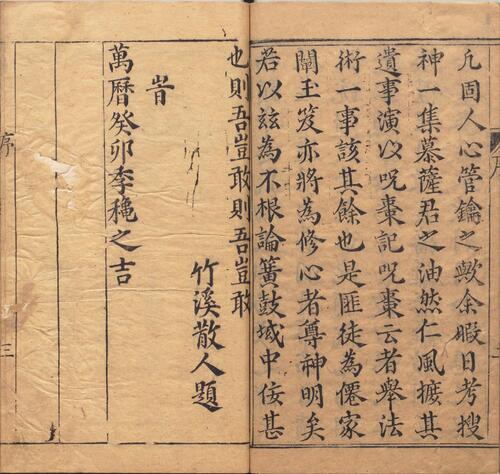 凢固人心管鑰之歟余暇日考搜
神一集慕薩君之油然仁風擴其
遺事演以呪棗記呪棗云者舉法
術一事該其餘也是匪徒為僊家
闡玉笈亦將為修心者尊神明矣
若以兹為不根論簧鼓域中佞甚
也則吾豈敢則吾豈敢
竹溪散人題
旹
萬曆癸卯季穐之吉
序 三